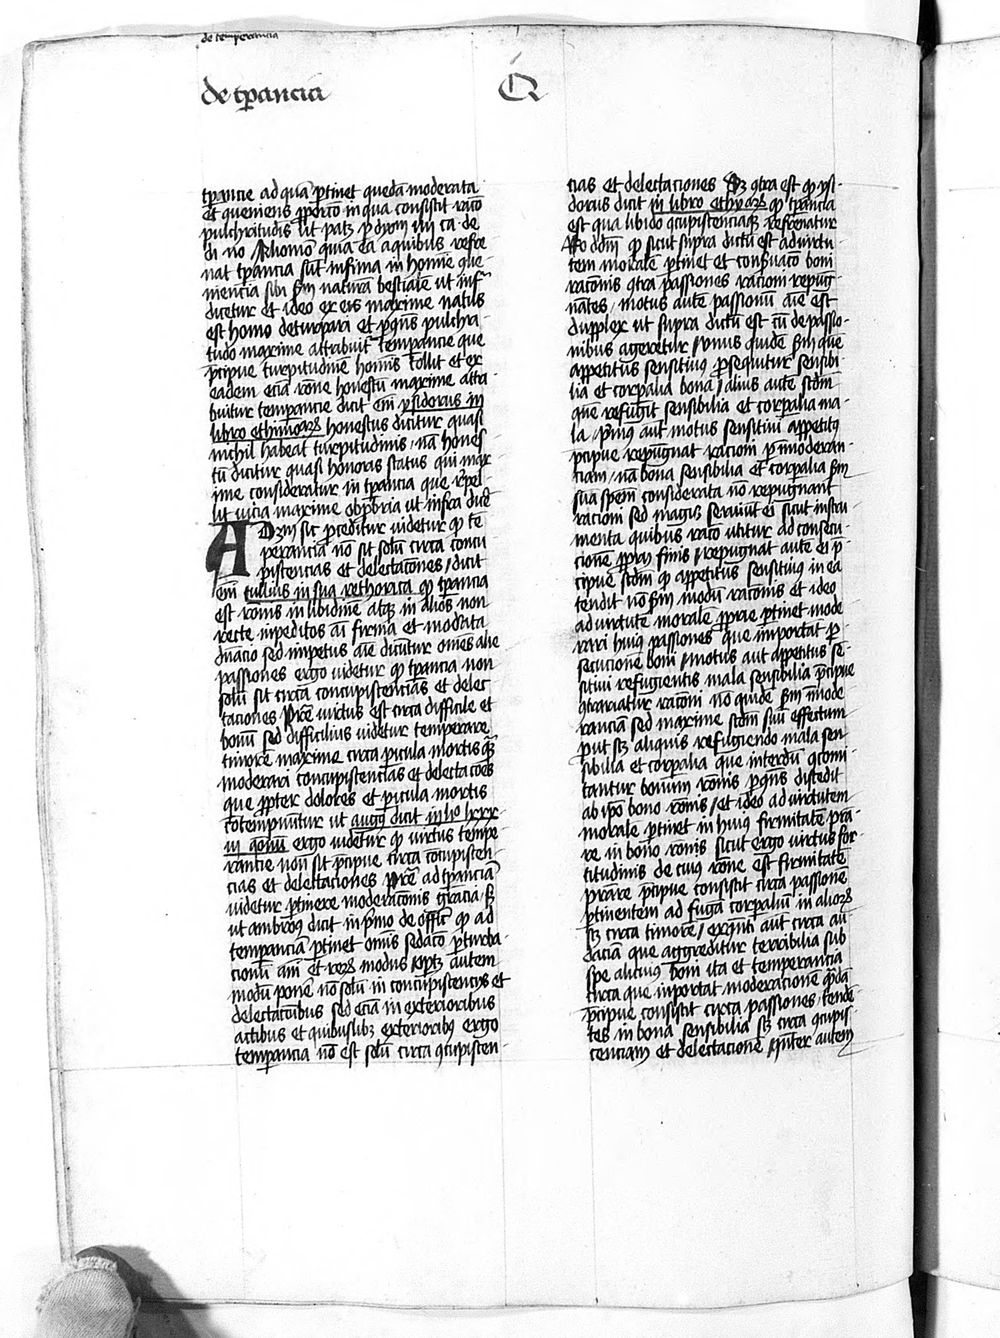 de temperancia
de tꝑancia
Q
tꝑancie ad quā ꝑtinet queda moderata
et queniens ꝓporcō in qua consistit racō
pulchritudis vt patꝫ ꝑ dyoni iiii ca de
di no Alio mō quia ea a quibus refre
nat tꝑancia sūt infima in homīe que
niencia sibi scdm naturā bestialē ut inf̄
dicetur et ideo ex eis maxime natus
est homo deturpari et ꝑ qn̄s pulchri
tudo maxime attribuit̄ temꝑancie que
p̄cipue turpitudinē homīs tollit et ex
eadem eciā rōne honestū maxime attri
buitur temꝑancie dicit em̄ ysidorus in
libro ethimoloꝝ honestus dicitur quasi
nichil habeat turpitudinis nā hones
tū dicitur quasi honoris status qui max
ime consideratur in tꝑancia que repel
lit vicia maxime obꝓbria ut infra dicē
ADꝫm sic ꝓceditur videtur ꝙ tē
perancia nō sit solū circa concu
pistencias et delectacōnes dicit
em̄ tullius in sua rethorica ꝙ tꝑancia
est rōnis in libidinē atqꝫ in alios non
recte inpeditos aī firma et modata
dnacio sed impetus aīe dicūtur omēs aīe
passiones ergo videtur ꝙ tꝑancia non
solū sit circa concupistencias et delec
taciones Pretē virtus est circa difficile et
bonū sed difficilius videtur temperare
timorē maxime circa picula mortis qꝫ
moderari concupistencias et delectacōes
que ꝓpter dolores et picula mortis
cōtempnūtur ut augꝰ dicit in lio lxxx
iii qōnū ergo videtur ꝙ virtus tempe
rancie non sit p̄cipue circa cōcupisten
cias et delectaciones Pretē ad tꝑanciā
videtur ptinere moderacōnis gracia sꝫ
ut ambroꝰ dicit in pͥmo de offic̄ ꝙ ad
temꝑanciā ꝑtinet omīs sedacō ꝑturba
cionū aīmi et reꝝ modus oportꝫ autem
modū ponē nō solū in concupistencijs et
delectacōibus sed eciā in exterioribus
actibus et quibuslibꝫ exterioribꝰ ergo
temꝑancia nō est solū circa ꝯcupisten
cias et delectaciones Sꝫ ꝯtra est ꝙ ysi
dorus dicit in libro ethyoꝝ ꝙ tꝑancia
est qua libido ꝯcupistenciaqꝫ refrenatur
Rō ddm̄ ꝙ sicut supra dictū est ad virtu
tem moralē ꝑtinet et conꝑuacō boni
racōnis ꝯtra passiones racioni repug
nātes motus autē passionū aīe est
dupplex ut supra dictū est cū de passio
nibus ageretur vnus quidē scdm quē
appetitus sensitiuꝰ ꝓsequitur sensibi
lia et corꝑalia bona alius autē scdm
quē refugit sensibilia et corꝑalia ma
la pͥmꝰ aut̄ motus sensitiui appetitꝰ
p̄cipue repugnat racioni ꝑ inmoderan
ciam nā bona sensibilia et corꝑalia scdm
suā spēm considerata nō repugnant
racioni sed magis seruiūt ei sicut instru
menta quibus racō utitur ad consecu
cionē ꝓprii finis repugnat autē ei p̄
cipue scdm ꝙ appetitus sensitiuꝰ in ea
tendit nō scdm modū racōnis et ideo
ad virtutē moralē ꝓprie ꝑtinet mode
rari huiꝰ passiones que importāt ꝑ
secucionē boni motus aut appetitus sē
sitiui refugientis mala sensibilia p̄cipue
ꝯtrariatur racōni nō quidē scdm īmode
ranciā sed maxime scdm suū effectum
put sꝫ aliquis refugiendo mala sen
sibilia et corꝑalia que interdū ꝯcomi
tantur bonum rōnis ꝑ qn̄s discedit
ab ipo bono rōnis et ideo ad virtutem
moralē ꝑtinet in huiꝰ firmitatē pr̄a
re in bono rōnis sicut ergo virtus for
titudinis de cuiꝰ rōne est firmitatē
p̄rare p̄cipue consistit circa passionē
ꝑtinentem ad fugā corꝑaliū maloꝝ
sꝫ circa timorē ex ꝯnti aut circa au
daciā que aggreditur terribilia sub
spe alicuiꝰ boni ita et temperancia
circa que inportat moderacionē q̄dā
p̄cipue consistit circa passiones tende
tes in bona sensibilia sꝫ circa ꝯcupis
cenciam et delectacionē ꝯn̄ter autem